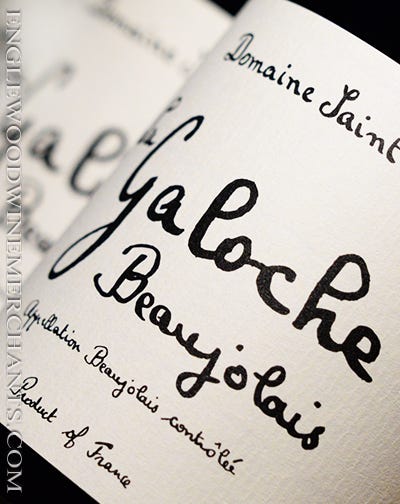 Domaine Saint
La
Galoche
Beaujolais
Appellation Beaujolais contrôlée
Product of France
ENGLEWOODWINEMERCHANTS.COM